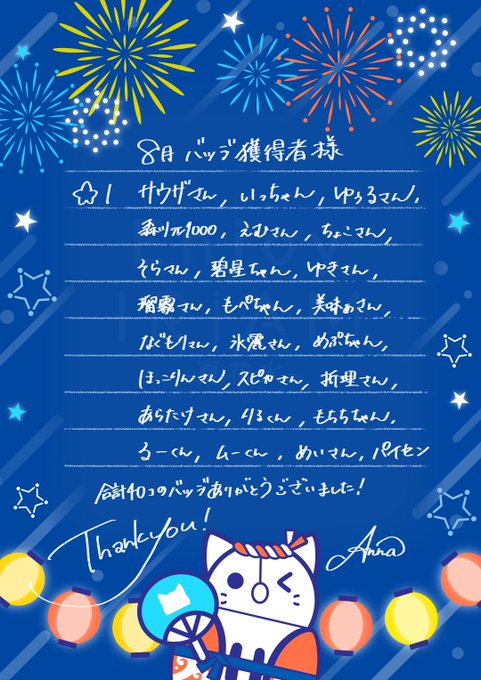 8月 バッジ獲得者様
☆1 サウザさん, いっちゃん, ゆぅるさん,
森リス1000, えむさん, ちょこさん,
そらさん, 碧星ちゃん, ゆきさん,
瑠霧さん, もぺちゃん, 美味ぁさん,
なぐもりさん, 氷麗さん, めぷちゃん,
ほっこりんさん, スピカさん, 折理さん,
あらたけさん, りるくん, もちちちゃん,
るーくん, ムーくん, めいさん, パイセン
合計40コのバッジありがとうございました!
Thank you!
Anna